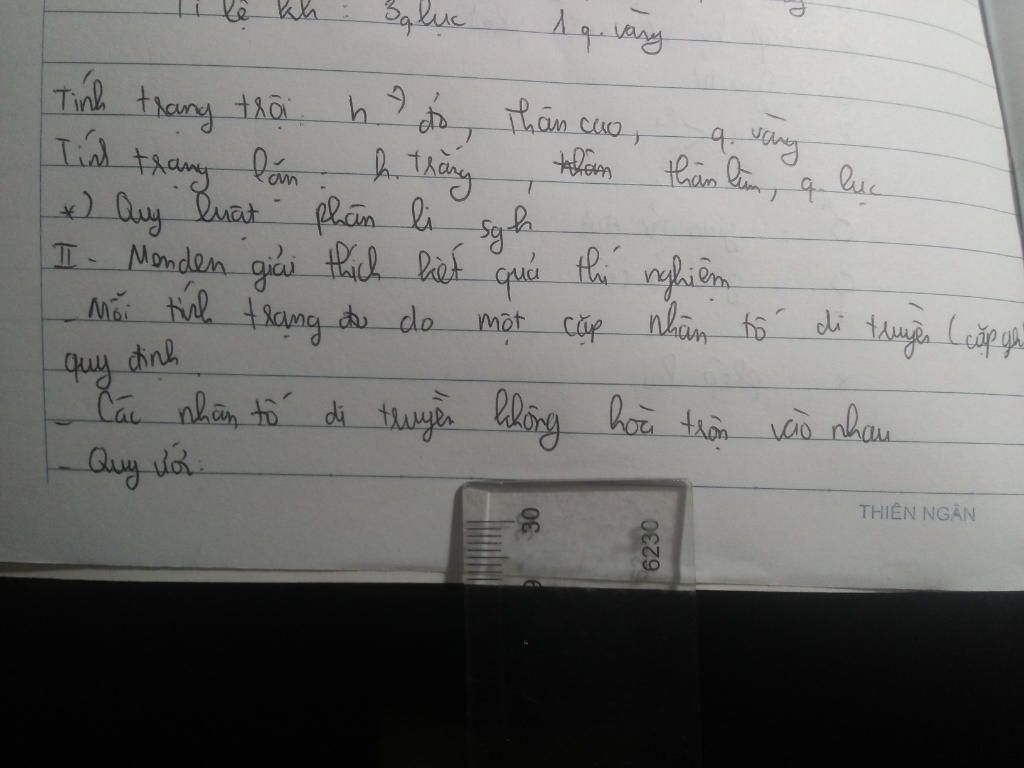 Tỉ lệ kh : 3q lục 1 q. vàng
Tính trạng trội: h. đỏ, thân cao, q. vàng
Tính trạng lặn: h. trắng, thân lùn, q. lục
*) Quy luật phân li sgk
II - Menden giải thích kết quả thí nghiệm
- Mỗi tính trạng do một cặp nhân tố di truyền (cặp ge
quy định
- Các nhân tố di truyền không hoà trộn vào nhau
- Quy ước:
THIÊN NGÂN
30
6230